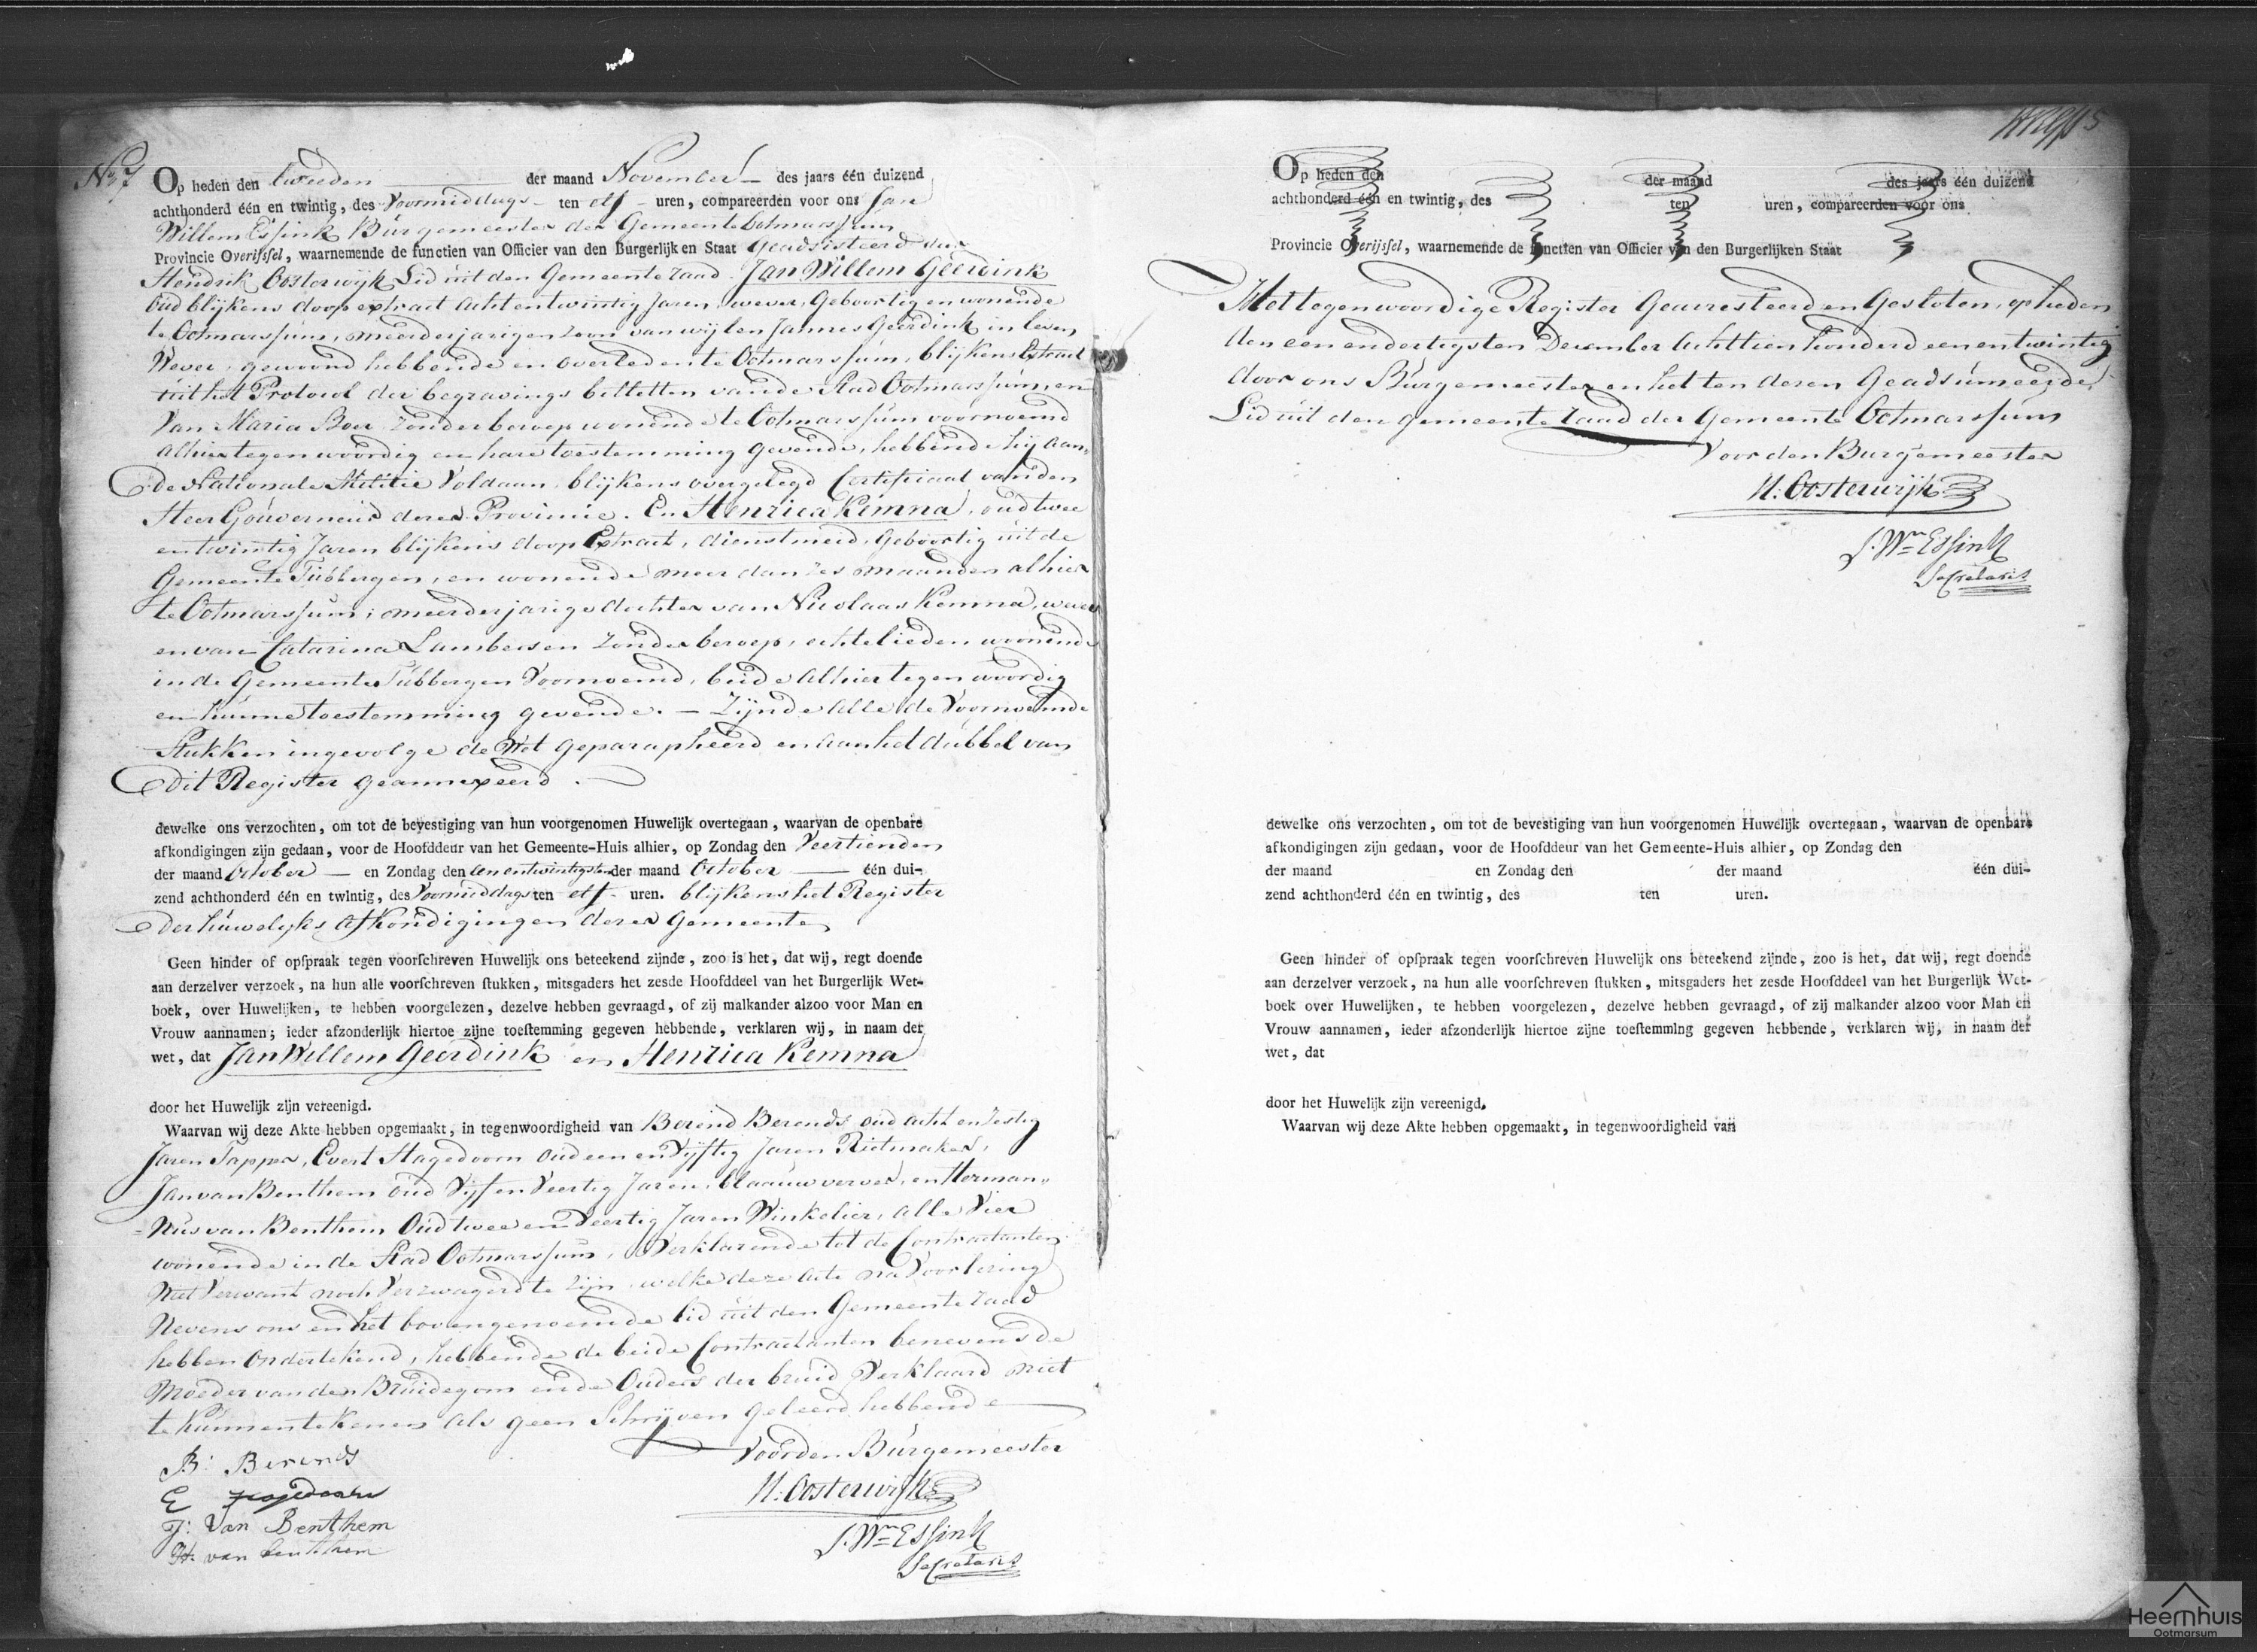 No 7
Op heden den tweeden der maand November des jaars één duizend
achthonderd één en twintig, des Voormiddags ten elf uren, compareerden voor ons Jan
Willem Essink Burgemeester der Gemeente Ootmarssum
Provincie Overijsſel, waarnemende de functien van Officier van den Burgerlijken Staat Geadsisteerd dur
Hendrik Oosterwijk Lid uit den Gemeente raad. Jan Willem Geerdink
Oud blijkens doop extract acht entwintig Jaren, wever, Geboortig en wonende
te Ootmarssum, meerderjarigen zoon van wijlen Jannes Geerdink in leven
Wever, gewoond hebbende en overleden te Ootmarssum, blijkens Extract
uit het Protocol der begravings billetten van de Stad Ootmarssum, en
Van Maria Boer zonder beroep wonende te Ootmarssum voornoemd
alhier tegenwoordig en hare toestemming gevende, hebbende hij aan
de Nationale Militie Voldaan, blijkens overgelegd Certificaat van den
Heer Gouverneur dezer Provincie. En Henrica Kemna, oud twee
en twintig Jaren blijkens doop Extract, dienstmeid, Geboortig uit de
Gemeente Tubbergen, en wonende meer dan zes maanden alhier
te Ootmarssum; meerderjarige dochter van Nicolaas Kemna, wever
en van Catarina Lambersen zonder beroep, echtelieden woonende
in de Gemeente Tubbergen Voornoemd, beide alhier tegenwoordig
en hunne toestemming gevende. — Zijnde alle de Voornoemde
Stukken ingevolge de Wet geparapheerd en aan het dubbel van
Dit Register geannexeerd.
dewelke ons verzochten, om tot de bevestiging van hun voorgenomen Huwelijk overtegaan, waarvan de openbare
afkondigingen zijn gedaan, voor de Hoofddeur van het Gemeente-Huis alhier, op Zondag den Veertienden
der maand October en Zondag den eenentwintigsten der maand October één dui-
zend achthonderd één en twintig, des Voormiddags ten elf uren. blijkens het Register
der huwelyks afkondigingen dezer Gemeente
Geen hinder of opſpraak tegen voorſchreven Huwelijk ons beteekend zijnde, zoo is het, dat wij, regt doende
aan derzelver verzoek, na hun alle voorſchreven ſtukken, mitsgaders het zesde Hoofddeel van het Burgerlijk Wet-
boek, over Huwelijken, te hebben voorgelezen, dezelve hebben gevraagd, of zij malkander alzoo voor Man en
Vrouw aannamen; ieder afzonderlijk hiertoe zijne toeſtemming gegeven hebbende, verklaren wij, in naam der
wet, dat Jan Willem Geerdink en Henrica Kemna
door het Huwelijk zijn vereenigd.
Waarvan wij deze Akte hebben opgemaakt, in tegenwoordigheid van Berend Berends oud acht en zestig
Jaren Tapper, Evert Hagedoorn oud een en Vijftig Jaren Rietmaker,
Jan van Benthem oud Vijf en Veertig Jaren, blaauw verver, en Herman-
-nus van Benthem Oud twee en Veertig Jaren Winkelier, alle Vier
wonende in de Stad Ootmarssum, Verklarende tot de Contractanten
niet Verwant noch Verzwagerd te zijn, welke deze acte na Voorlezing
Nevens ons en het bovengenoemde lid uit den Gemeente raad
hebben Ondertekend, hebbende de beide Contractanten benevens de
Moeder van den Bruidegom en de Ouders der bruid Verklaard niet
te kunnen tekenen als geen Schrijven geleerd hebbende
Voor den Burgemeester
B: Berends
H: Oosterwijk
E Hagedoorn
J: Van Benthem
J. Wm Essink
H. van benthem
Secretaris
Op heden den der maand des jaars één duizend
achthonderd één en twintig, des ten uren, compareerden voor ons
Provincie Overijsſel, waarnemende de functien van Officier van den Burgerlijken Staat
Het tegenwoordige Register Gearresteerd en Gesloten, op heden
den een en dertigsten December Achttien honderd een en twintig
door ons Burgemeester en het ten dezen Geadsumeerde
Lid uit den Gemeente raad der Gemeente Ootmarssum
Voor den Burgemeester
H: Oosterwijk
J. Wm Essink
Secretaris
dewelke ons verzochten, om tot de bevestiging van hun voorgenomen Huwelijk overtegaan, waarvan de openbare
afkondigingen zijn gedaan, voor de Hoofddeur van het Gemeente-Huis alhier, op Zondag den
der maand en Zondag den der maand één dui-
zend achthonderd één en twintig, des ten uren.
Geen hinder of opſpraak tegen voorſchreven Huwelijk ons beteekend zijnde, zoo is het, dat wij, regt doende
aan derzelver verzoek, na hun alle voorſchreven ſtukken, mitsgaders het zesde Hoofddeel van het Burgerlijk Wet-
boek over Huwelijken, te hebben voorgelezen, dezelve hebben gevraagd, of zij malkander alzoo voor Man en
Vrouw aannamen, ieder afzonderlijk hiertoe zijne toeſtemming gegeven hebbende, verklaren wij, in naam der
wet, dat
door het Huwelijk zijn vereenigd.
Waarvan wij deze Akte hebben opgemaakt, in tegenwoordigheid van
Heemhuis
Ootmarsum